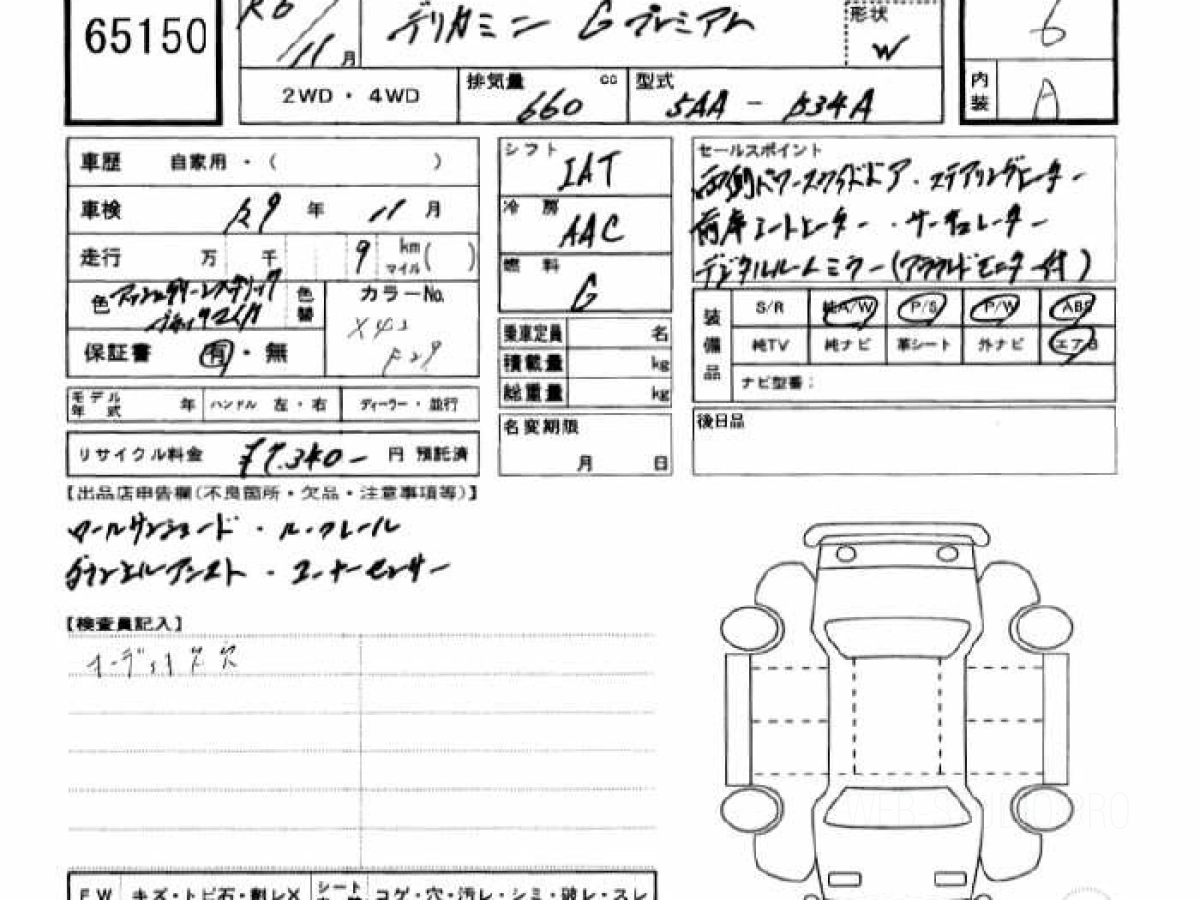 65150
R6/11月
デリカミニ Gプレミアム
形状 W
6
2WD・4WD
排気量 cc 660
型式 5AA-B34A
内装 A
車歴 自家用・( )
車検 R9年 11月
走行 万 千 9 km マイル( )
色 アッシュグリーンメタリック
ブラックマイカ
色替
カラーNo.
X42
保証書 有・無
シフト IAT
冷房 AAC
燃料 G
乗車定員 名
積載量 kg
総重量 kg
セールスポイント
両側パワースライドドア・ステアリングヒーター
前席シートヒーター・サーキュレーター
デジタルルームミラー(アラウンドモニター付)
装備品
S/R 純A/W P/S P/W ABS
純TV 純ナビ 革シート 外ナビ エアB
ナビ型番:
モデル年式 年 ハンドル 左・右 ディーラー・並行
名変期限 月 日
後日品
リサイクル料金 ¥7.340- 円 預託済
【出品店申告欄(不良箇所・欠品・注意事項等)】
ロールサンシェード・ルーフレール
ダウンヒルアシスト・コーナーセンサー
【検査員記入】
オーディオスペース穴
FW キズ・トビ石・削レX シート コゲ・穴・汚レ・シミ・破レ・スレ